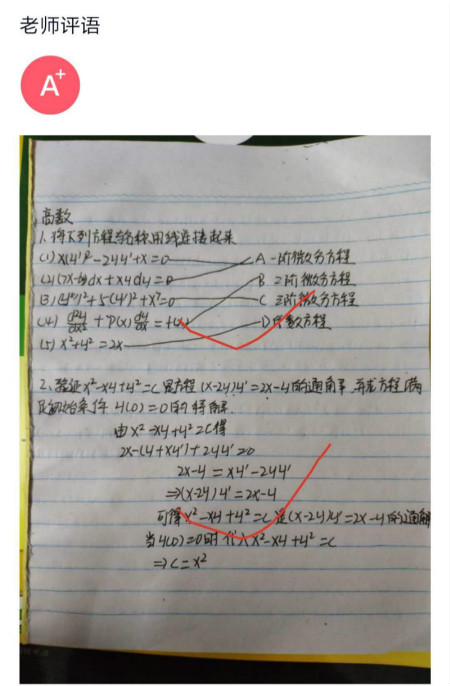 老师评语
A+
高数
1、将下列方程与名称用线连接起来
(1) x(y')²-2yy'+x=0 A 一阶微分方程
(2) (7x-6y)dx+xydy=0 B 二阶微分方程
(3) (y''')²+5(y')²+x²=0 C 三阶微分方程
(4) d²y/dx² + P(x) dy/dx = f(x) D 代数方程
(5) x²+y²=2x
2、验证x²-xy+y²=c是方程(x-2y)y'=2x-y的通解,并求方程满
足初始条件 y(0)=0的特解.
由x²-xy+y²=c得
2x-(y+xy')+2yy'=0
2x-y=xy'-2yy'
⇒(x-2y)y'=2x-y
可得x²-xy+y²=c是(x-2y)y'=2x-y的通解
当y(0)=0时 代入x²-xy+y²=c
⇒c=x²